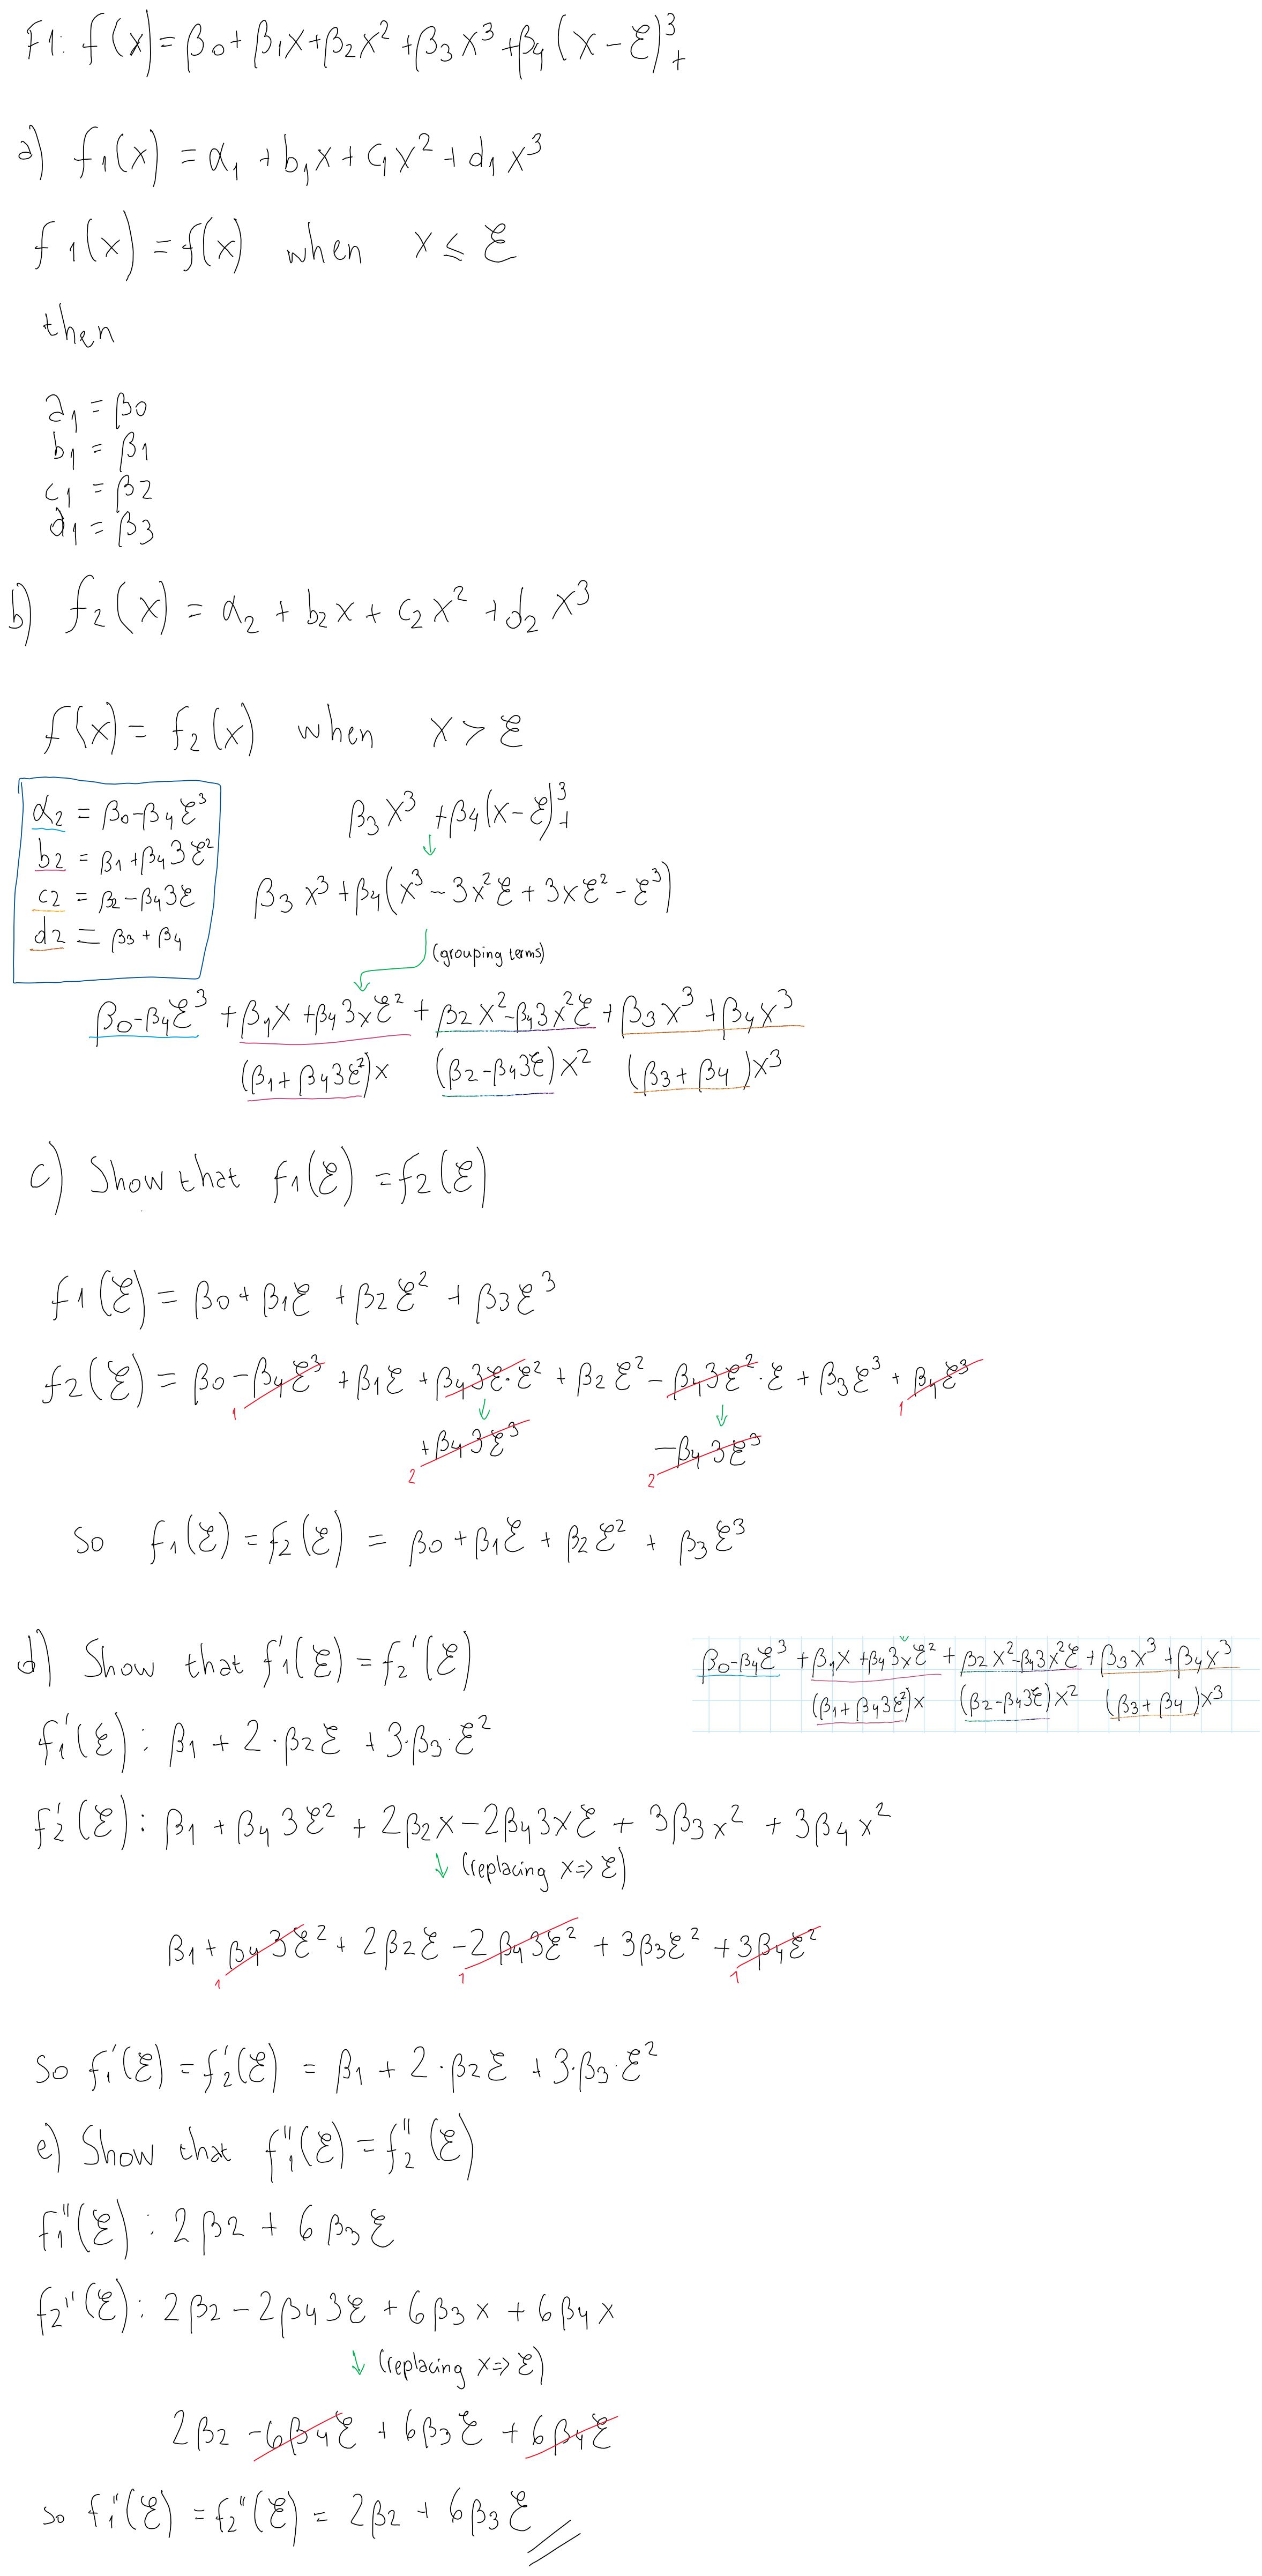 F1: f(x) = β0 + β1x + β2x² + β3x³ + β4(x − ξ)³₊
a) f₁(x) = α₁ + b₁x + c₁x² + d₁x³
f1(x) = f(x) when x ≤ ξ
then
a₁ = β0
b₁ = β1
c₁ = β2
d₁ = β3
b) f₂(x) = α₂ + b₂x + c₂x² + d₂x³
f(x) = f₂(x) when x > ξ
α₂ = β0 − β4ξ³
b2 = β1 + β4 3ξ²
c2 = β2 − β4 3ξ
d2 = β3 + β4
β3x³ + β4(x − ξ)³₊
↓
β3x³ + β4(x³ − 3x²ξ + 3xξ² − ξ³)
(grouping terms)
β0 − β4ξ³ + β1x + β4 3xξ² + β2x² − β4 3x²ξ + β3x³ + β4x³
(β1 + β4 3ξ²)x (β2 − β4 3ξ)x² (β3 + β4)x³
c) Show that f₁(ξ) = f₂(ξ)
f1(ξ) = β0 + β1ξ + β2ξ² + β3ξ³
f2(ξ) = β0 − β4ξ³ + β1ξ + β4 3ξ·ξ² + β2ξ² − β4 3ξ²·ξ + β3ξ³ + β4ξ³
1 ↓ ↓ 1
+β4 3ξ³ −β4 3ξ³
2 2
So f₁(ξ) = f₂(ξ) = β0 + β1ξ + β2ξ² + β3ξ³
d) Show that f₁'(ξ) = f₂'(ξ)
β0 − β4ξ³ + β1x + β4 3xξ² + β2x² − β4 3x²ξ + β3x³ + β4x³
(β1 + β4 3ξ²)x (β2 − β4 3ξ)x² (β3 + β4)x³
f₁'(ξ): β1 + 2·β2ξ + 3·β3·ξ²
f₂'(ξ): β1 + β4 3ξ² + 2β2x − 2β4 3xξ + 3β3x² + 3β4x²
↓ (replacing x => ξ)
β1 + β4 3ξ² + 2β2ξ − 2β4 3ξ² + 3β3ξ² + 3β4ξ²
1 1 1
So f₁'(ξ) = f₂'(ξ) = β1 + 2·β2ξ + 3·β3·ξ²
e) Show that f₁''(ξ) = f₂''(ξ)
f₁''(ξ): 2β2 + 6β3ξ
f₂''(ξ): 2β2 − 2β4 3ξ + 6β3x + 6β4x
↓ (replacing x => ξ)
2β2 − 6β4ξ + 6β3ξ + 6β4ξ
so f₁''(ξ) = f₂''(ξ) = 2β2 + 6β3ξ //